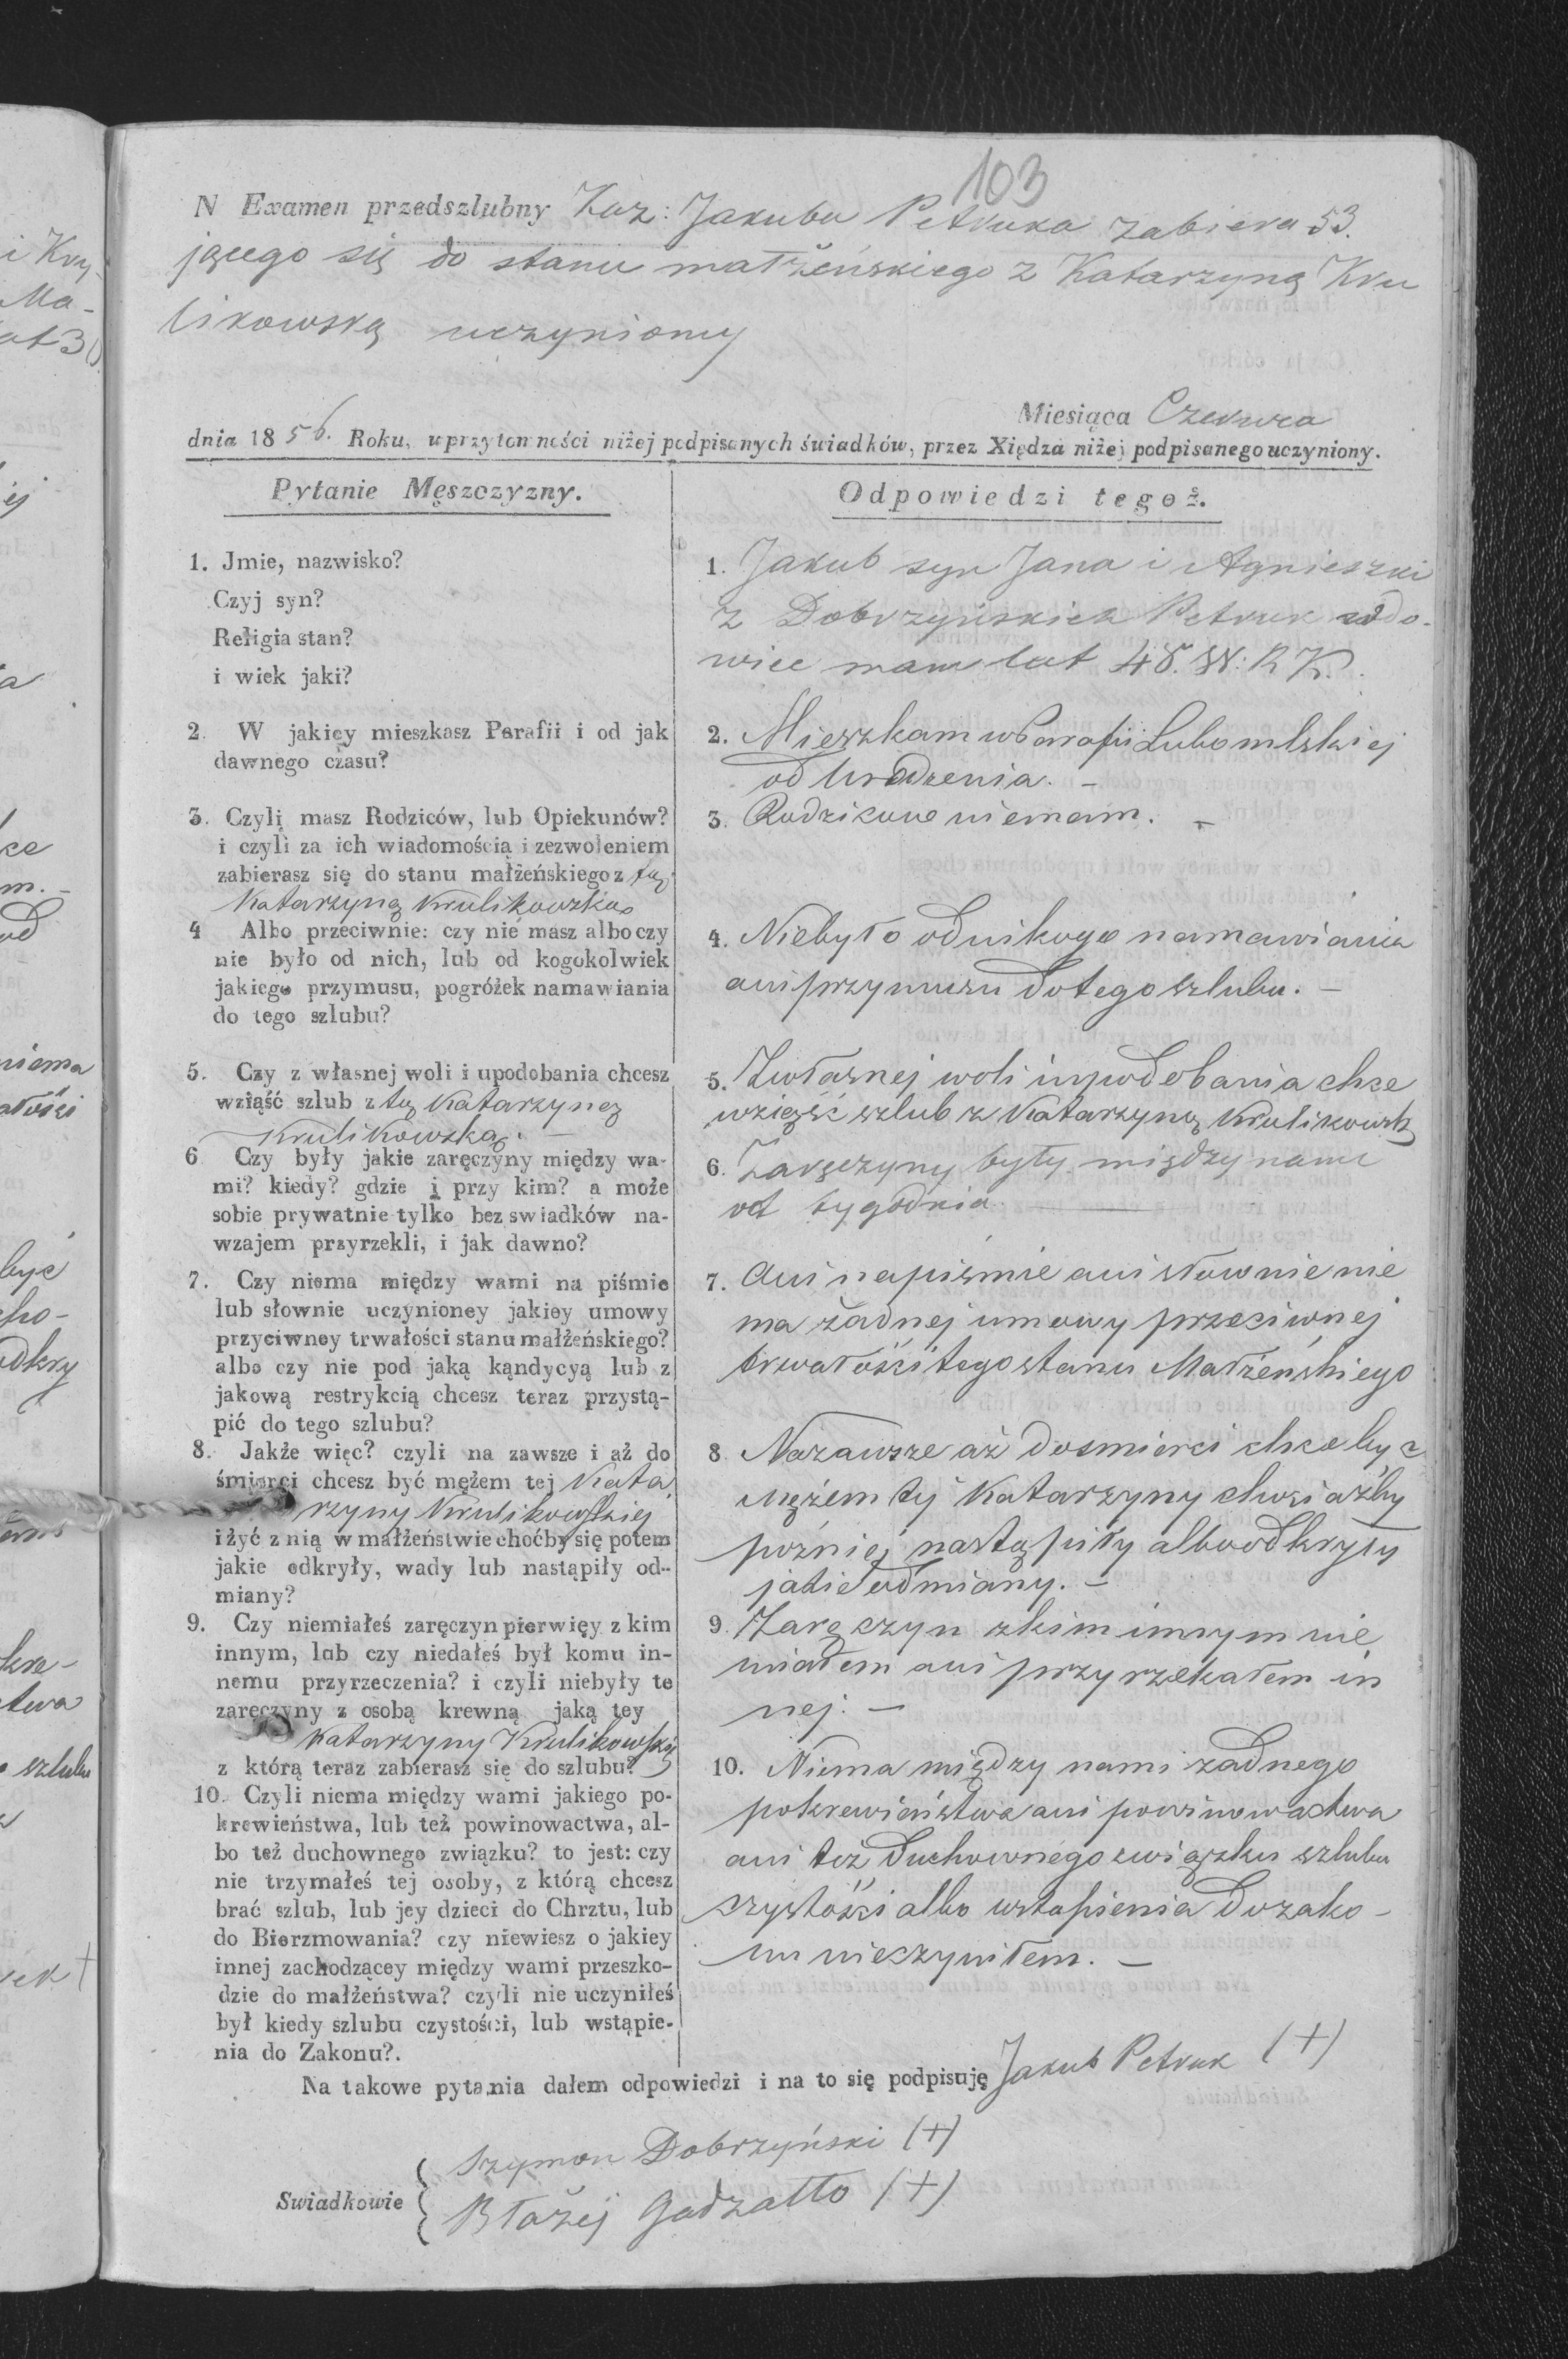 103
N Examen przedszlubny Kaz: Jakuba Petruka zabiera 53.
jącego się do stanu małżeńskiego z Katarzyną Kru
likowską uczyniony
Miesiąca Czerwca
dnia 1856. Roku, w przytomności niżej podpisanych świadków, przez Xiędza niżej podpisanego uczyniony.
Pytanie Męszczyzny.
1. Jmie, nazwisko?
Czyj syn?
Religia stan?
i wiek jaki?
2. W jakiey mieszkasz Parafii i od jak
dawnego czasu?
3. Czyli masz Rodziców, lub Opiekunów?
i czyli za ich wiadomością i zezwoleniem
zabierasz się do stanu małżeńskiego z tą
Katarzyną Krulikowską
4 Albo przeciwnie: czy nie masz albo czy
nie było od nich, lub od kogokolwiek
jakiego przymusu, pogróżek namawiania
do tego szlubu?
5. Czy z własnej woli i upodobania chcesz
wziąść szlub z tą Katarzyną
Krulikowską.
6 Czy były jakie zaręczyny między wa-
mi? kiedy? gdzie i przy kim? a może
sobie prywatnie tylko bez swiadków na-
wzajem przyrzekli, i jak dawno?
7. Czy niema między wami na piśmie
lub słownie uczynioney jakiey umowy
przyciwney trwałości stanu małżeńskiego?
albo czy nie pod jaką kąndycyą lub z
jakową restrykcią chcesz teraz przystą-
pić do tego szlubu?
8. Jakże więc? czyli na zawsze i aż do
śmierci chcesz być mężem tej Kata
rzyny Krulikowskiej
i żyć z nią w małżeństwie choćby się potem
jakie odkryły, wady lub nastąpiły od-
miany?
9. Czy niemiałeś zaręczyn pierwięy z kim
innym, lub czy niedałeś był komu in-
nemu przyrzeczenia? i czyli niebyły te
zaręczyny z osobą krewną jaką tey
Katarzyny Krulikowskiej
z którą teraz zabierasz się do szlubu?
10. Czyli niema między wami jakiego po-
krewieństwa, lub też powinowactwa, al-
bo też duchownego związku? to jest: czy
nie trzymałeś tej osoby, z którą chcesz
brać szlub, lub jey dzieci do Chrztu, lub
do Bierzmowania? czy niewiesz o jakiey
innej zachodzącey między wami przeszko-
dzie do małżeństwa? czyli nie uczyniłeś
był kiedy szlubu czystości, lub wstąpie-
nia do Zakonu?.
Odpowiedzi tegoż.
1. Jakub syn Jana i Agnieszki
z Dobrzyńskich Petruk wdo-
wiec mam lat 48. W: R K.
2. Mieszkam w Parafii Lubomlskiej
od Urodzenia. -
3. Rodzikuw niemam. -
4. Niebyło odnikogo namawiania
ani przymusu do tego szlubu. -
5. Zwłasnej woli i upodobania chce
wziąść szlub z Katarzyną Krulikowsk
6. Zaręczyny były między nami
od tygodnia.
7. Ani napiśmie ani słownie nie
ma żadnej umowy przeciwnej
trwałości tego stanu Małżeńskiego
8. Nazawsze aż dosmierci chce byc
mężem tyj Katarzyny chociażby
pózniej nastąpiły albo odkryły
jakie odmiany. -
9. Zaręczyn zkim innym nie
miałem ani przyrzekałem in
nej. -
10. Niema między nami żadnego
pokrewieństwa ani powinowactwa
ani też duchownego związku szlubu
czystości albo wstąpienia do zako-
nu nieczyniłem. -
Na takowe pytania dałem odpowiedzi i na to się podpisuję Jakub Petruk (+)
Swiadkowie
Szymon Dobrzyński (+)
Błażej Gadzałło (+)